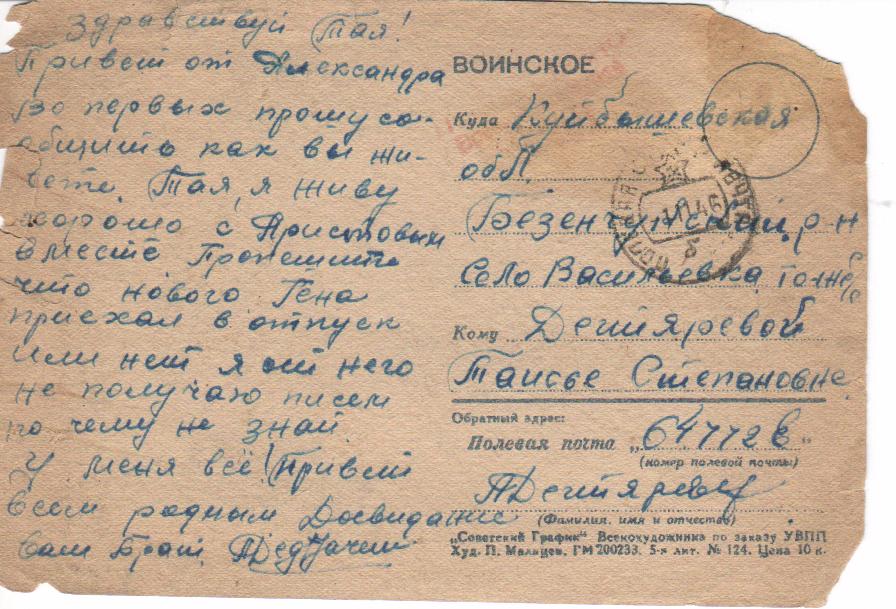 Здравствуй Тая!
Привет от Александра
Во первых прошу со-
общить как вы жи-
вете. Тая, я живу
хорошо с Аристовым
вместе Пропешите
что нового Гена
приехал в отпуск
или нет я от него
не получаю писем
по чему не знай
У меня всё! Привет
всем родным Досвидание
ваш брат
ВОИНСКОЕ
Куда Куйбышевская
обл.
Безенчукский р-н
Село Васильевка
Кому Дегтяревой
Таисье Степановне
Обратный адрес:
Полевая почта „64772 в“
(номер полевой почты)
(Фамилия, имя и отчество)
„Советский График“ Всекохудожника по заказу УВПП
Худ. П. Малнцев. ГМ 200233. 5-я лит. № 124. Цена 10 к.